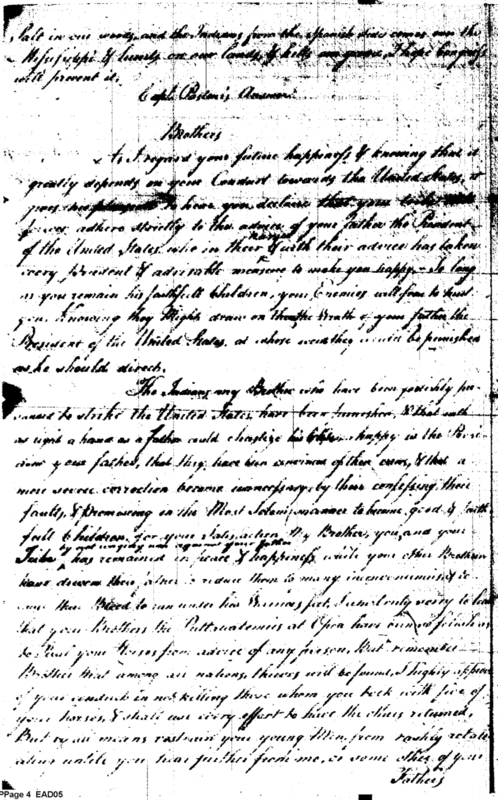 Salt in our woods, and the Indians from the Spanish side comes over the
Mississippi & hunts on our lands, & kills our game, I hope Congress
will prevent it.
Capt. Answer
Brothers
As I regard your future happiness & knowing that it
greatly depends on your Conduct towards the United States, it
gives to hear you declare that you will
forever adhere strictly to the advice of your father the President
of the United States, who in their with their advice has taken
every prudent & advisable measure to make you happy. So long
as you remain his faithfull Children, your Enemies will fear to hurt
you. Knowing they Might draw on them the Wrath of your father the
President of the United States, at whose word they would be punished
as he should direct.
The Indians my Brother who have been
to strike the United States, have been & that with
as light a hand as a father could chastize his happy is the
your father, that they have been convinced of their & that a
more severe correction became unnecessary, by their confessing their
faults, & promising in the Most Solemn manner to become good & faith
full Children, for your Satisfaction My Brother, you and your
by not waging war against your father
Tribe has remained in peace & happiness, while your other Brothers
have to reduce them to many inconveniences &
their Blood to run under feet, I am truly sorry to hear
that your Brothers the Puttuwatemies at have been so foolish as
to Steal your Horses from advice of any person, But remember
Brother that among all nations, thieves will be found, I highly
of your conduct in not killing those whom you took with five of
your horses, & shall use every effort to have the others returned,
But by all means restrain your young Men from rashly
until you hear further from me, or some other of your
Fathers
PPage 4 EAD05